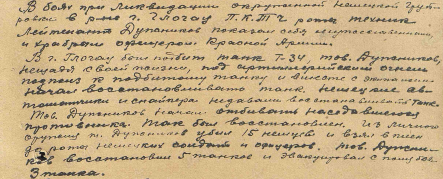 В боях при ликвидации окруженной немецкой груп-
ровки в р-не г. Глогау П.К.Т.Ч роты техник
Лейтенант Дупаников показал себя мужественным
и храбрым офицером Красной Армии.
В г. Глогау был подбит танк Т-34, тов. Дупаников,
нещадя своей жизни, под артиллерийским огнем
подполз к подбитому танку и вместе с экипажем
начал восстанавливать танк. немецкие ав-
томатчики и снайпера недавали восстанавливать танк.
Тов. Дупаников начал отбивать наседавшего
противника. Танк был восстановлен. Из личного
оружия т. Дупаников убил 15 немцев и взял в плен
до роты немецких солдат и офицеров. Тов. Дупани-
ков восстановил 5 танков и эвакуировал с поля боя
3 танка.